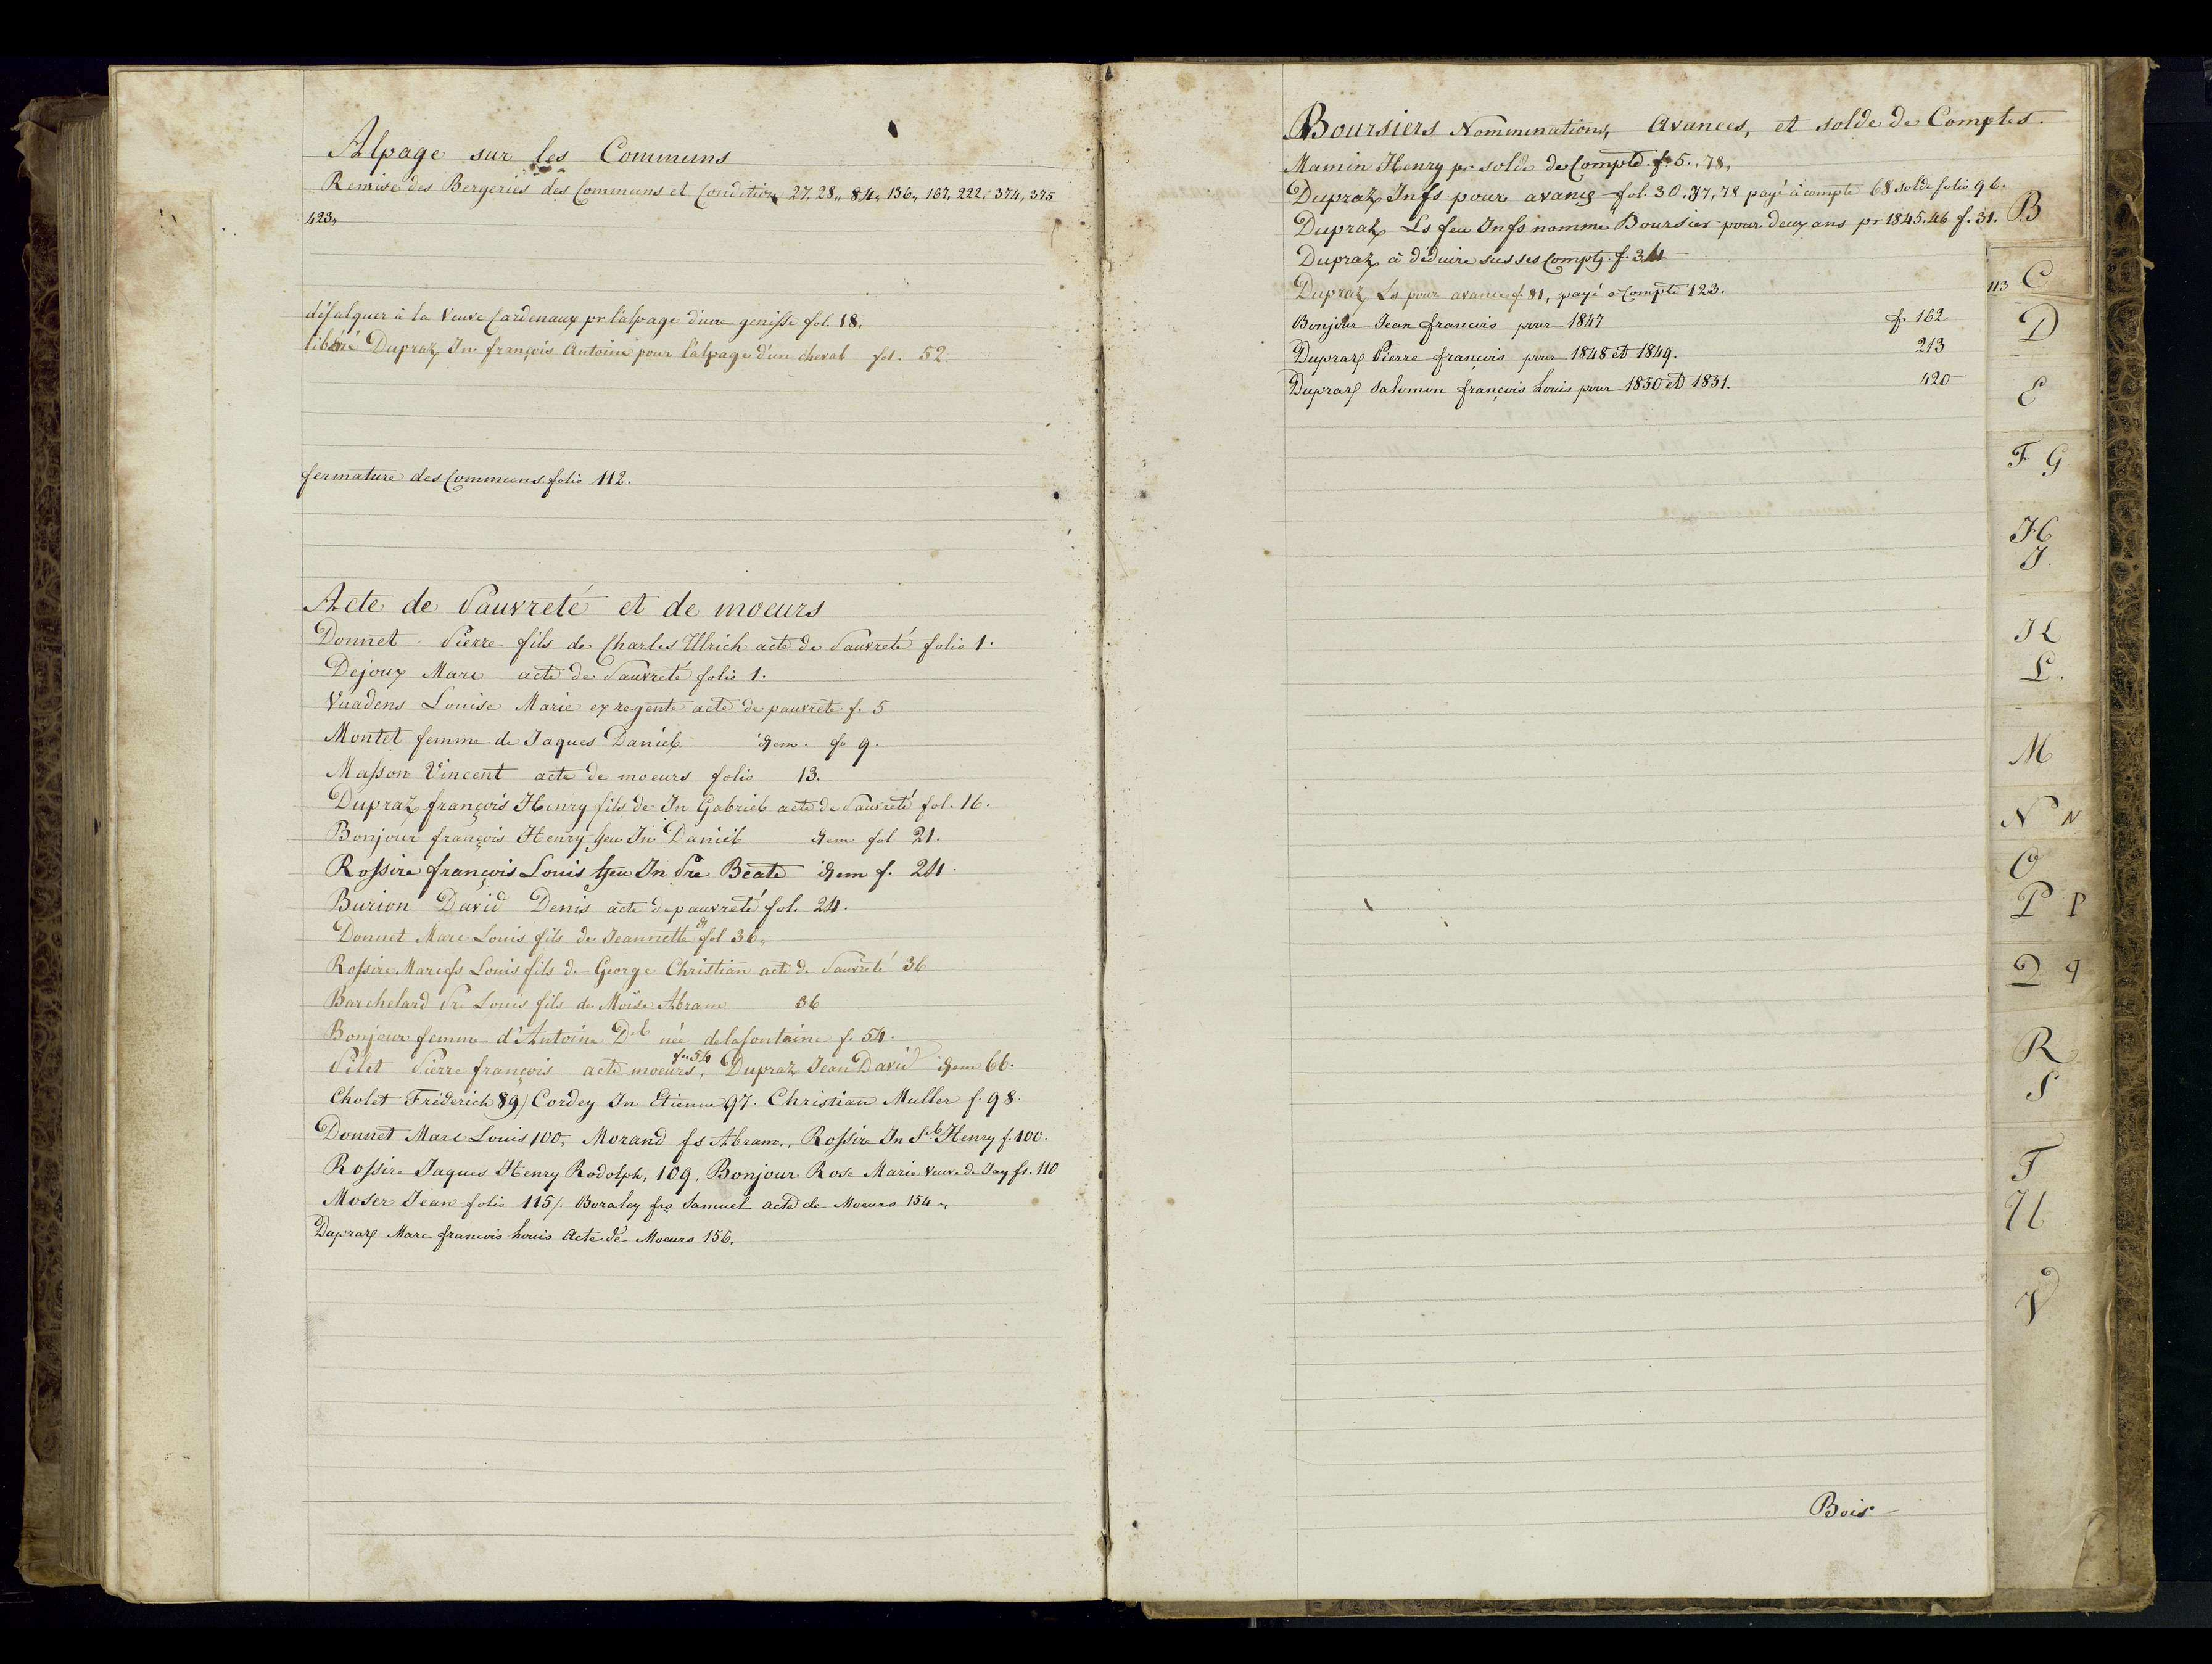 Alpage sur les Communs
Remise des Bergeries des Communs et Condition 27, 28,, 84,, 136,, 167, 222, 374, 375
423,,
défalquer à la Veuve Cardenaux pr l'alpage d'une genisse fol. 18.
libéré Dupraz Jn françois Antoine pour l'alpage d'un cheval fol. 52.
fermature des Communs. folio 112.
Acte de Pauvreté et de moeurs
Donnet Pierre fils de Charles Ulrich acte de Pauvreté folio 1.
Dejoux Marc acte de Pauvreté folio 1.
Vuadens Louise Marie ex regente acte de pauvreté f. 5
Montet femme de Jaques Daniel idem. fo 9.
Masson Vincent acte de moeurs folio 13.
Dupraz françois Henry fils de Jn Gabriel acte de Pauvreté fol. 16.
Bonjour françois Henry feu Jn Daniel idem fol 21.
Rossire françois Louis feu Jn Pre Béate idem f. 24.
Burion David Denis acte de pauvreté fol. 24.
Donnet Marc Louis fils de Jeannette fol 36,,
Rossire Marc fs Louis fils de George Christian acte de Pauvreté 36
Barchelard Pre Louis fils de Moïse Abram 36
Bonjour femme d'Antoine Del née delafontaine f. 54.
Pilet Pierre françois acte moeurs, fo 54 Dupraz Jean David idem 66.
Cholet Friderich 89/ Cordey Jn Etienne 97. Christian Muller f. 98.
Donnet Marc Louis 100, Morand fs Abram., Rossire Jn Sl Henry f. 100.
Rossire Jaques Henry Rodolph, 109, Bonjour Rose Marie veuve de Jaq fs. 110
Moser Jean folio 115/. Boraley frs Samuel acte de Moeurs 154,,
Dupraz Marc francois Louis Acte de Moeurs 156.
Boursiers Nomminations, Avances, et solde de Comptes.
Mamin Henry pr solde de Compte. fo 5., 78,
Dupraz Jn fs pour avance fol. 30, 37, 78 payé à compte 68 solde folio 96.
Dupraz Ls feu Jn fs nommé Boursier pour deux ans pr 1845.46 f. 31.
Dupraz à déduire sus ses Compts f. 34
Dupraz Ls pour avance f. 81, payé a Compte 123.
113
Bonjour Jean francois pour 1847 f. 162
Dupraz Pierre françois pour 1848 et 1849. 213
Dupraz Salomon françois Louis pour 1850 et 1851. 420
Bois
B
C
D
E
F G
H
J.
K
L.
M
N N
O
P P
Q q
R
S
T
U
V